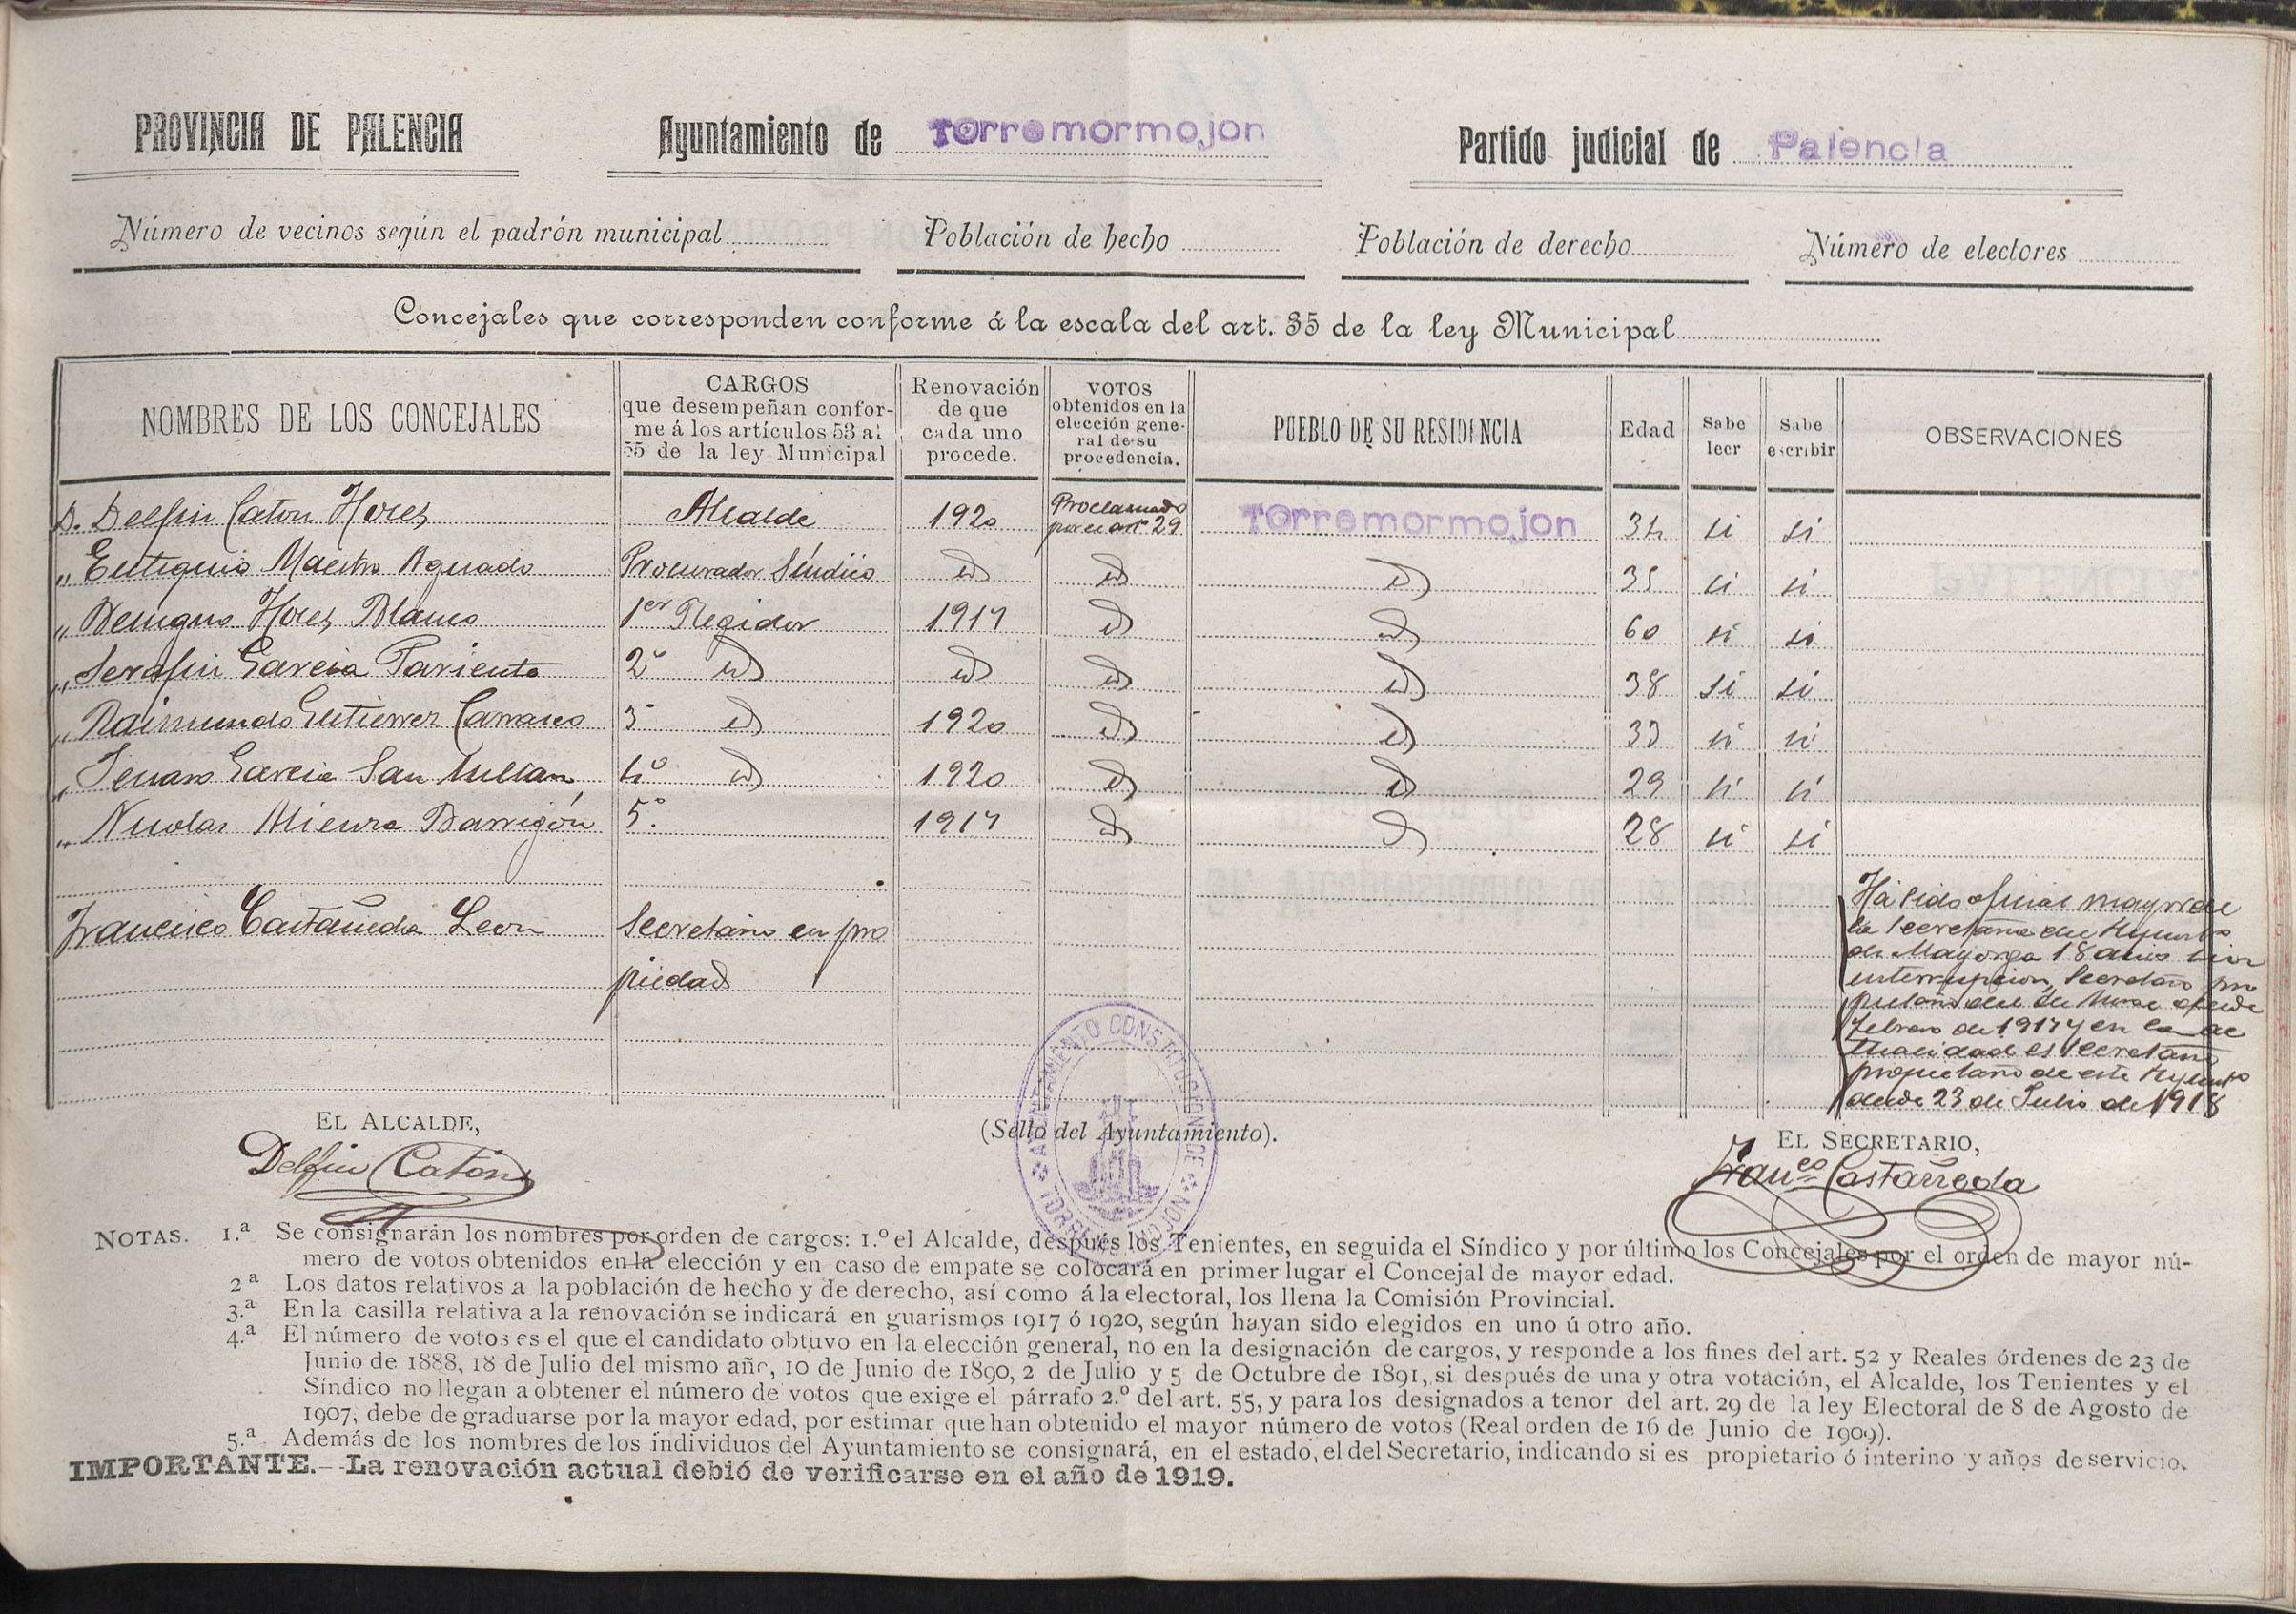 PROVINCIA DE PALENCIA Ayuntamiento de Torremormojon Partido judicial de Palencia
Número de vecinos según el padrón municipal Población de hecho Población de derecho Número de electores
Concejales que corresponden conforme á la escala del art. 35 de la ley Municipal
NOMBRES DE LOS CONCEJALES
CARGOS
que desempeñan confor-
me á los artículos 53 al
55 de la ley Municipal
Renovación
de que
cada uno
procede.
VOTOS
obtenidos en la
elección gene-
ral de su
procedencia.
PUEBLO DE SU RESIDENCIA
Edad
Sabe
leer
Sabe
escribir
OBSERVACIONES
D. Delfin Caton Hores Alcalde 1920 Proclamado por el artº 29 Torremormojon 34 si si
" Eutiquio Maestro Aguado Procurador Síndico id id id 35 si si
" Benigno Hores Blanco 1er Regidor 1917 id id 60 si si
" Serafin Garcia Pariente 2º id id id id 38 si si
" Raimundo Gutierrez Carrasco 3º id 1920 id id 33 si si
" Jenaro Garcia San Millan 4º id 1920 id id 29 si si
" Nicolas Barrigón 5.º 1917 id id 28 si si
Francisco Castañeda Leon Secretario en pro
piedad
Há sido oficial mayor de
la Secretaria del Ayunto
de Mayorga 18 años sin
interrupcion, Secretario pro
pietario del de desde
Febrero de 1917 y en la ac
tualidad es Secretario
propietario de este Ayunto
desde 23 de Julio de 1918
EL ALCALDE,
Delfin Catón
(Sello del Ayuntamiento).
AYUNTAMIENTO CONSTITUCIONAL DE TORREMORMOJON
EL SECRETARIO,
Franco Castañeda
NOTAS. 1.ª Se consignarán los nombres por orden de cargos: 1.º el Alcalde, después los Tenientes, en seguida el Síndico y por último los Concejales por el orden de mayor nú-
mero de votos obtenidos en la elección y en caso de empate se colocará en primer lugar el Concejal de mayor edad.
2ª Los datos relativos a la población de hecho y de derecho, así como á la electoral, los llena la Comisión Provincial.
3.ª En la casilla relativa a la renovación se indicará en guarismos 1917 ó 1920, según hayan sido elegidos en uno ú otro año.
4.ª El número de votos es el que el candidato obtuvo en la elección general, no en la designación de cargos, y responde a los fines del art. 52 y Reales órdenes de 23 de
Junio de 1888, 18 de Julio del mismo año, 10 de Junio de 1890, 2 de Julio y 5 de Octubre de 1891, si después de una y otra votación, el Alcalde, los Tenientes y el
Síndico no llegan a obtener el número de votos que exige el párrafo 2.º del art. 55, y para los designados a tenor del art. 29 de la ley Electoral de 8 de Agosto de
1907, debe de graduarse por la mayor edad, por estimar que han obtenido el mayor número de votos (Real orden de 16 de Junio de 1909).
5.ª Además de los nombres de los individuos del Ayuntamiento se consignará, en el estado, el del Secretario, indicando si es propietario ó interino y años de servicio.
IMPORTANTE.—La renovación actual debió de verificarse en el año de 1919.